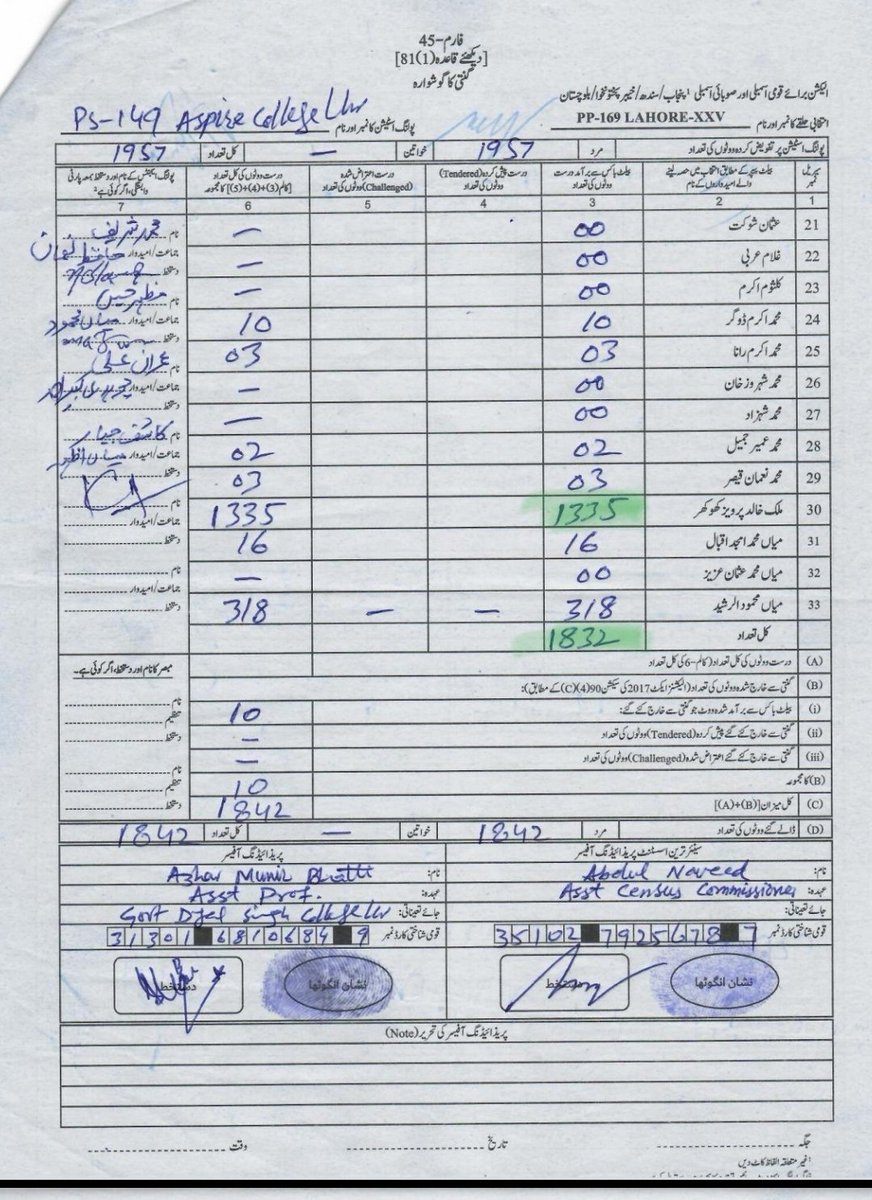 فارم-45
[دیکھئے قاعدہ 81(1)]
گنتی کا گوشوارہ
الیکشن برائے قومی اسمبلی اور صوبائی اسمبلی ¹پنجاب/سندھ/خیبر پختونخوا/بلوچستان
انتخابی حلقے کا نمبر اور نام PP-169 LAHORE-XXV پولنگ اسٹیشن کا نمبر اور نام PS-149 Aspire College Lhr
پولنگ اسٹیشن پر تفویض کردہ ووٹوں کی تعداد مرد 1957 خواتین — کل تعداد 1957
سیریل نمبر بیلٹ پیپر کے مطابق انتخاب میں حصہ لینے والے امیدواروں کے نام بیلٹ باکس سے برآمد درست ووٹوں کی تعداد درست پیش کردہ (Tendered) ووٹوں کی تعداد درست اعتراض شدہ (Challenged) ووٹوں کی تعداد درست ووٹوں کی کل تعداد [کالم (3)+(4)+(5)] کا مجموعہ پولنگ ایجنٹس کے نام اور دستخط بمعہ پارٹی وابستگی، اگر کوئی ہے²
1 2 3 4 5 6 7
21 عثمان شوکت 00 — نام محمد شریف
22 غلام عربی 00 — جماعت/امیدوار حافظ نعمان
دستخط
23 کلثوم اکرم 00 — نام مظہر حسین
24 محمد اکرم ڈوگر 10 10 جماعت/امیدوار میاں محمود
دستخط
25 محمد اکرم رانا 03 03 نام عمران علی
26 محمد شہروز خان 00 — جماعت/امیدوار چوہدری
دستخط
27 محمد شہزاد 00 — نام کاشف
28 محمد عمیر جمیل 02 02 جماعت/امیدوار میاں اظہر
29 محمد نعمان قیصر 03 03 دستخط
30 ملک خالد پرویز کھوکھر 1335 1335 نام
جماعت/امیدوار
31 میاں محمد امجد اقبال 16 16 دستخط
32 میاں محمد عثمان عزیز 00 — نام
جماعت/امیدوار
33 میاں محمود الرشید 318 — — 318 دستخط
کل تعداد 1832
(A) درست ووٹوں کی کل تعداد (کالم-6 کی کل تعداد مبصر کا نام اور دستخط، اگر کوئی ہے۔
(B) گنتی سے خارج شدہ ووٹوں کی تعداد (الیکشنز ایکٹ 2017 کی سیکشن 90(4)(C) کے مطابق):
(i) بیلٹ باکس سے برآمد شدہ ووٹ جو گنتی سے خارج کئے گئے: 10 نام
تنظیم
(ii) گنتی سے خارج کئے گئے پیش کردہ (Tendered) ووٹوں کی تعداد — دستخط
(iii) گنتی سے خارج کئے گئے اعتراض شدہ (Challenged) ووٹوں کی تعداد — نام
(B) کا مجموعہ 10 تنظیم
(C) کل میزان [(A)+(B)] 1842 دستخط
(D) ڈالے گئے ووٹوں کی تعداد مرد 1842 خواتین — کل تعداد 1842
سینئر ترین اسسٹنٹ پریذائیڈنگ آفیسر پریذائیڈنگ آفیسر
نام: Abdul Naveed نام: Azhar Munir Bhatti
عہدہ: Asst Census Commissioner عہدہ: Asst Prof.
جائے تعیناتی: جائے تعیناتی: Govt Dyal Singh College Lhr
قومی شناختی کارڈ نمبر 35102 7925678 7 قومی شناختی کارڈ نمبر 31301 6810684 9
نشان انگوٹھا دستخط نشان انگوٹھا دستخط
پریذائیڈنگ آفیسر کی تحریر (Note)
جگہ تاریخ وقت
¹غیر متعلقہ الفاظ کاٹ دیں